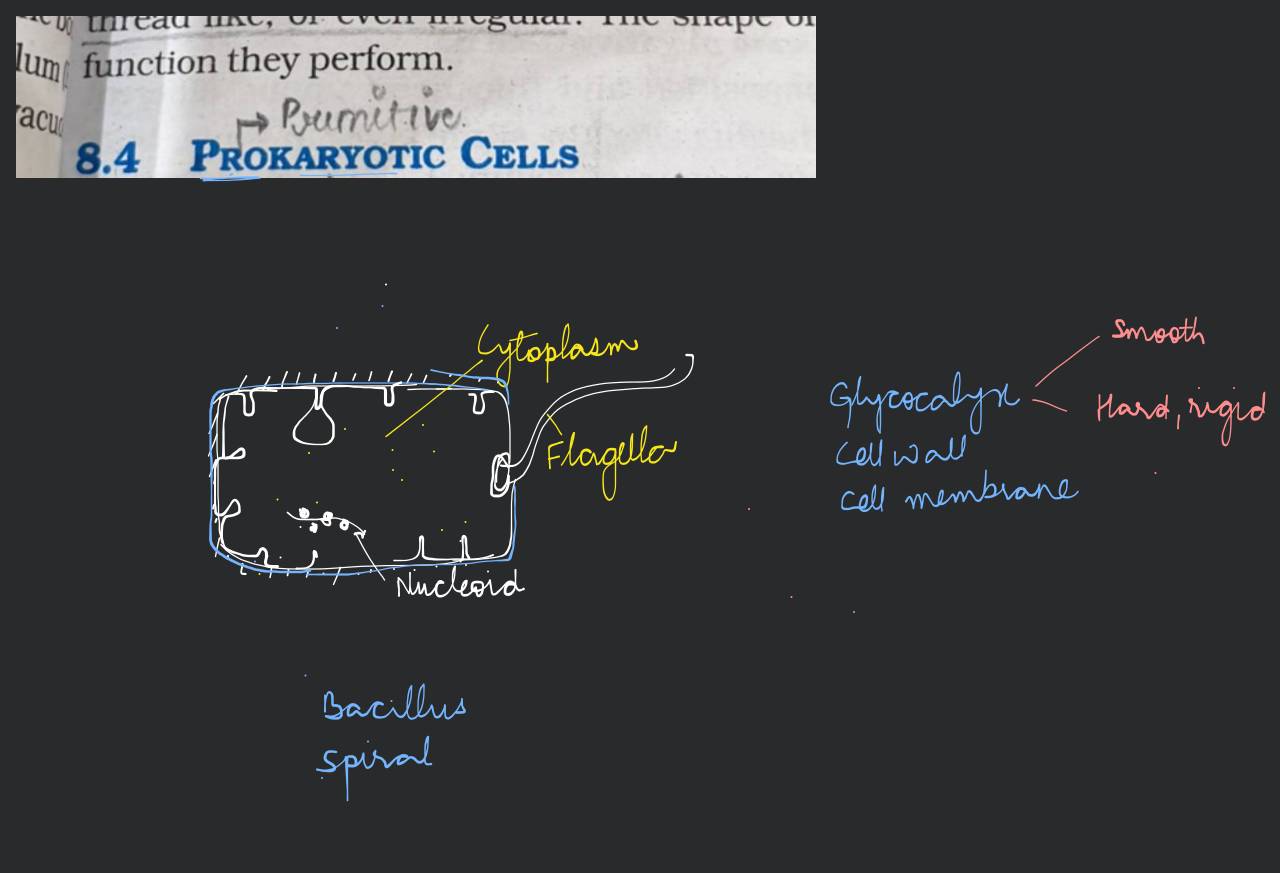 thread like, or even irregular. The shape of
function they perform.
lum
vacu
Primitive.
8.4 PROKARYOTIC CELLS
Cytoplasm
Smooth
Glycocalyx
Hard, rigid
Flagella
Cell wall
Cell membrane
Nucleoid
Bacillus
Spiral